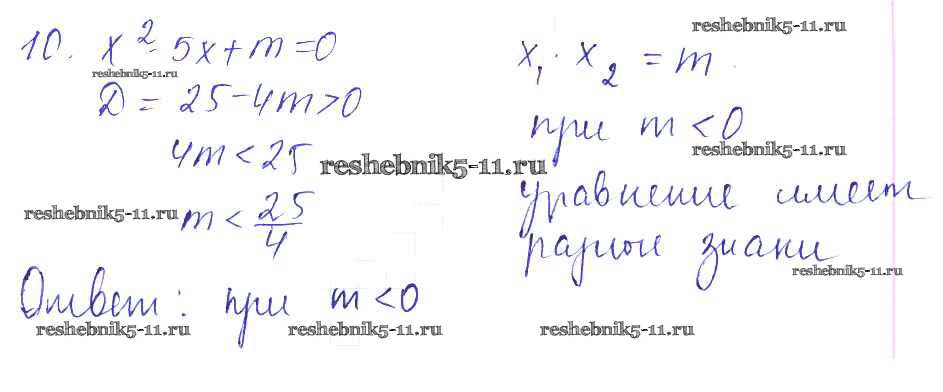 10. x² - 5x + m = 0
reshebnik5-11.ru
D = 25 - 4m > 0
4m < 25
reshebnik5-11.ru
reshebnik5-11.ru
m < 25/4
Ответ: при m < 0
reshebnik5-11.ru
reshebnik5-11.ru
reshebnik5-11.ru
x₁ · x₂ = m
при m < 0
reshebnik5-11.ru
уравнение имеет
разные знаки
reshebnik5-11.ru
reshebnik5-11.ru